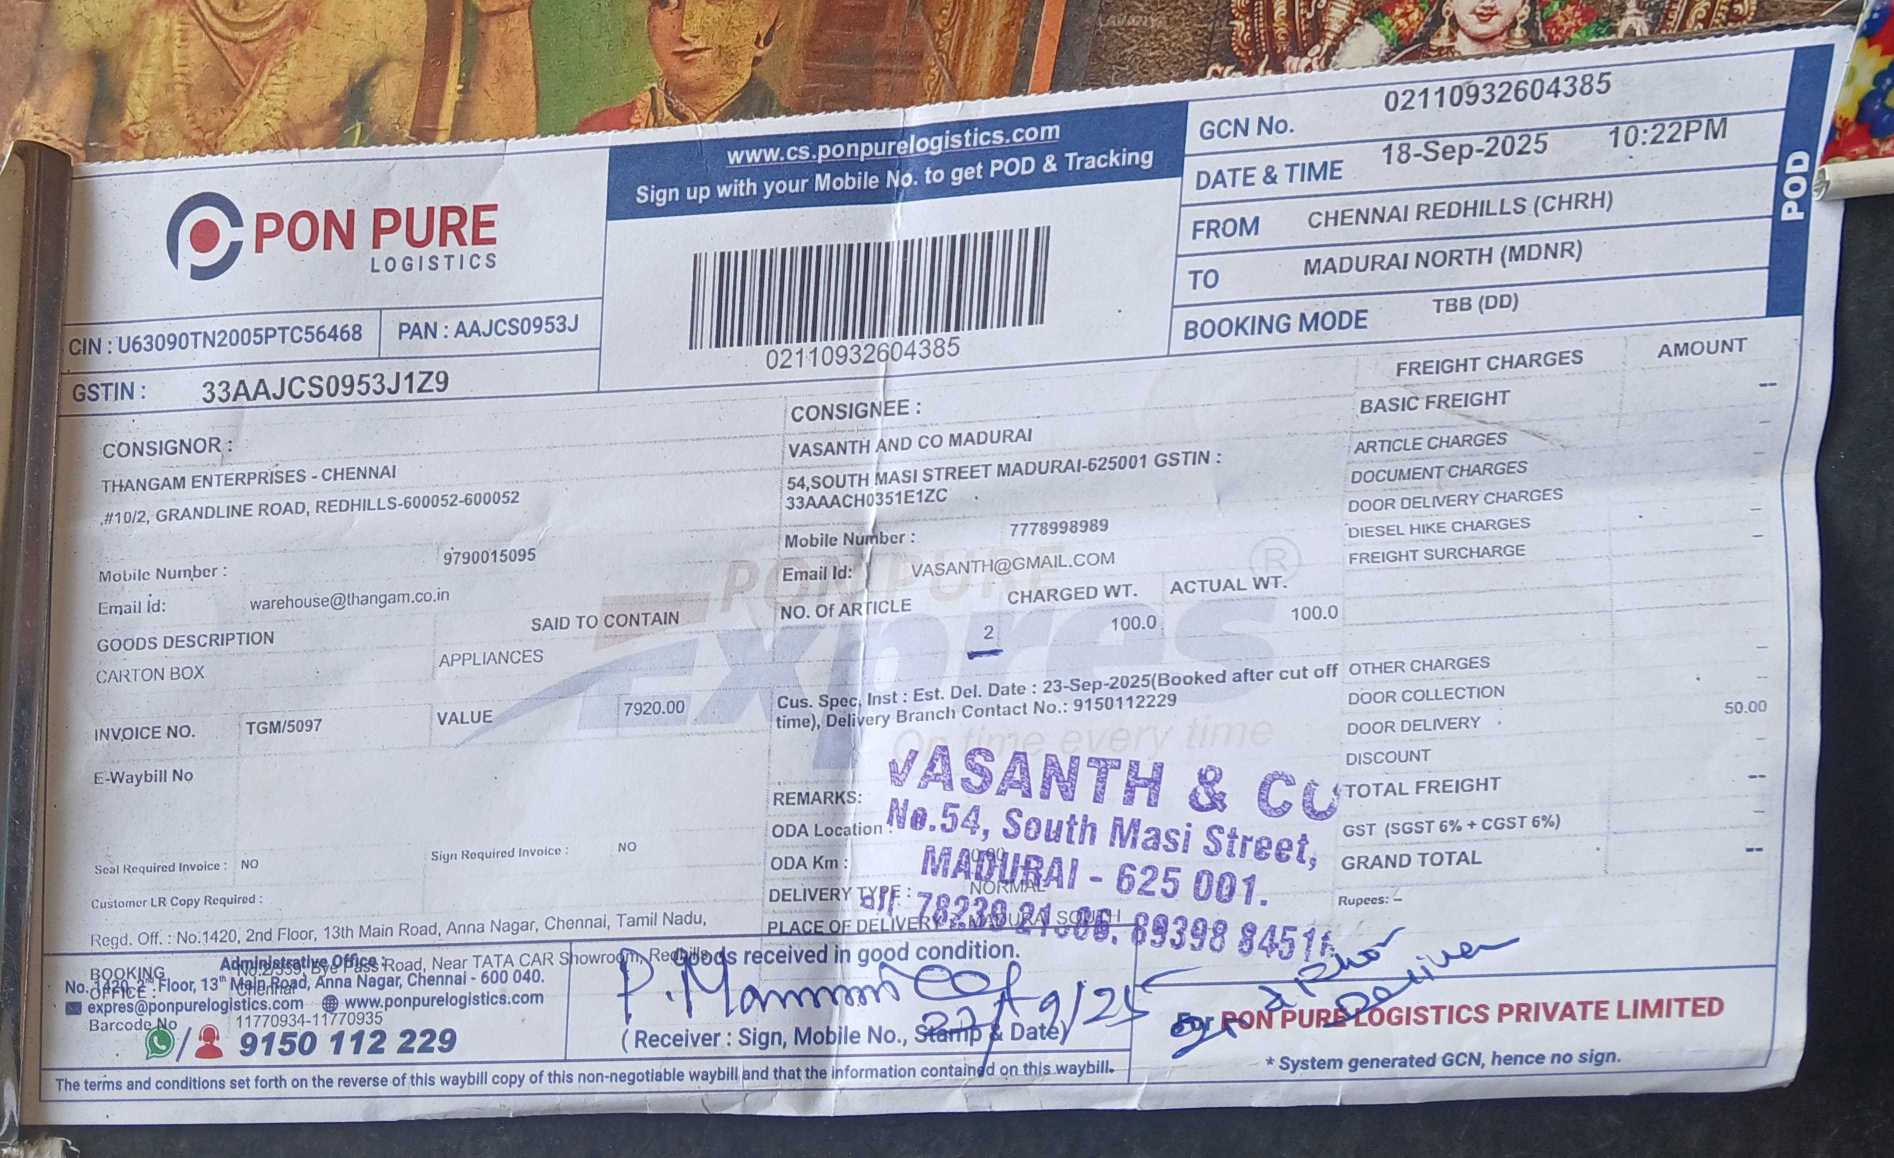 www.cs.ponpurelogistics.com
Sign up with your Mobile No. to get POD & Tracking
PON PURE
LOGISTICS
CIN : U63090TN2005PTC56468
PAN : AAJCS0953J
GSTIN : 33AAJCS0953J1Z9
02110932604385
GCN No. 02110932604385
DATE & TIME 18-Sep-2025 10:22PM
FROM CHENNAI REDHILLS (CHRH)
TO MADURAI NORTH (MDNR)
BOOKING MODE TBB (DD)
POD
CONSIGNOR :
THANGAM ENTERPRISES - CHENNAI
,#10/2, GRANDLINE ROAD, REDHILLS-600052-600052
Mobile Number : 9790015095
Email Id: warehouse@thangam.co.in
GOODS DESCRIPTION SAID TO CONTAIN
CARTON BOX APPLIANCES
INVOICE NO. TGM/5097 VALUE 7920.00
E-Waybill No
Seal Required Invoice : NO Sign Required Invoice : NO
Customer LR Copy Required :
CONSIGNEE :
VASANTH AND CO MADURAI
54,SOUTH MASI STREET MADURAI-625001 GSTIN :
33AAACH0351E1ZC
Mobile Number : 7778998989
Email Id: VASANTH@GMAIL.COM
NO. Of ARTICLE CHARGED WT. ACTUAL WT.
2 100.0 100.0
PON PURE
Expres
®
On time every time
Cus. Spec. Inst : Est. Del. Date : 23-Sep-2025(Booked after cut off
time), Delivery Branch Contact No.: 9150112229
REMARKS:
ODA Location :
ODA Km : 0.00
DELIVERY TYPE : NORMAL
PLACE OF DELIVERY : MADURAI SOUTH
VASANTH & CO
No.54, South Masi Street,
MADURAI - 625 001.
FREIGHT CHARGES AMOUNT
BASIC FREIGHT --
ARTICLE CHARGES -
DOCUMENT CHARGES -
DOOR DELIVERY CHARGES
DIESEL HIKE CHARGES -
FREIGHT SURCHARGE -
OTHER CHARGES -
DOOR COLLECTION -
DOOR DELIVERY 50.00
DISCOUNT -
TOTAL FREIGHT --
GST (SGST 6% + CGST 6%) -
GRAND TOTAL --
Rupees: –
Regd. Off. : No.1420, 2nd Floor, 13th Main Road, Anna Nagar, Chennai, Tamil Nadu,
BOOKING OFFICE : No.2/339, Bye Pass Road, Near TATA CAR Showroom, Redhills,
Chennai
Administrative Office :
No. 1420, 2nd Floor, 13th Main Road, Anna Nagar, Chennai - 600 040.
expres@ponpurelogistics.com www.ponpurelogistics.com
Barcode No 11770934-11770935
9150 112 229
Goods received in good condition.
(Receiver : Sign, Mobile No., Stamp & Date)
For PON PURE LOGISTICS PRIVATE LIMITED
* System generated GCN, hence no sign.
The terms and conditions set forth on the reverse of this waybill copy of this non-negotiable waybill and that the information contained on this waybill.